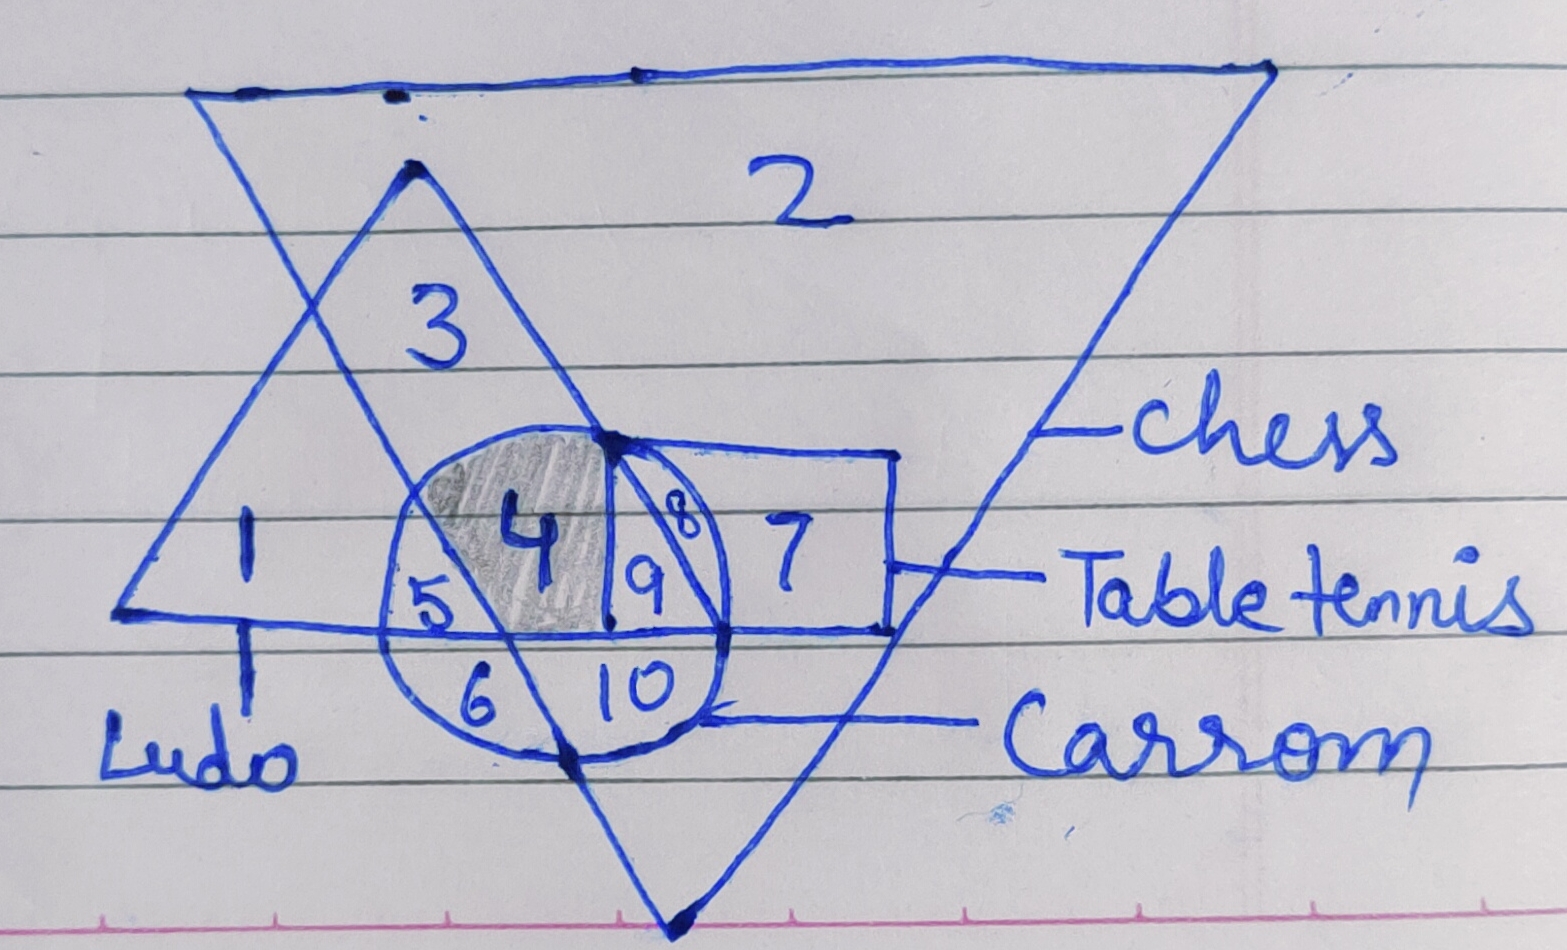 2
3
chess
1
4
8
7
5
9
Table tennis
6
10
Ludo
Carrom